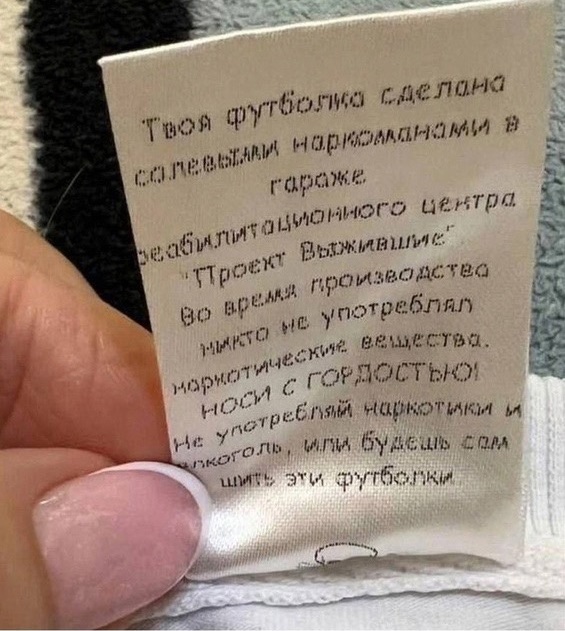 Твоя футболка сделана
солевыми наркоманами в
гараже
реабилитационного центра
"Проект Выжившие"
Во время производства
никто не употреблял
наркотические вещества.
НОСИ С ГОРДОСТЬЮ!
Не употребляй наркотики и
алкоголь, или будешь сам
шить эти футболки